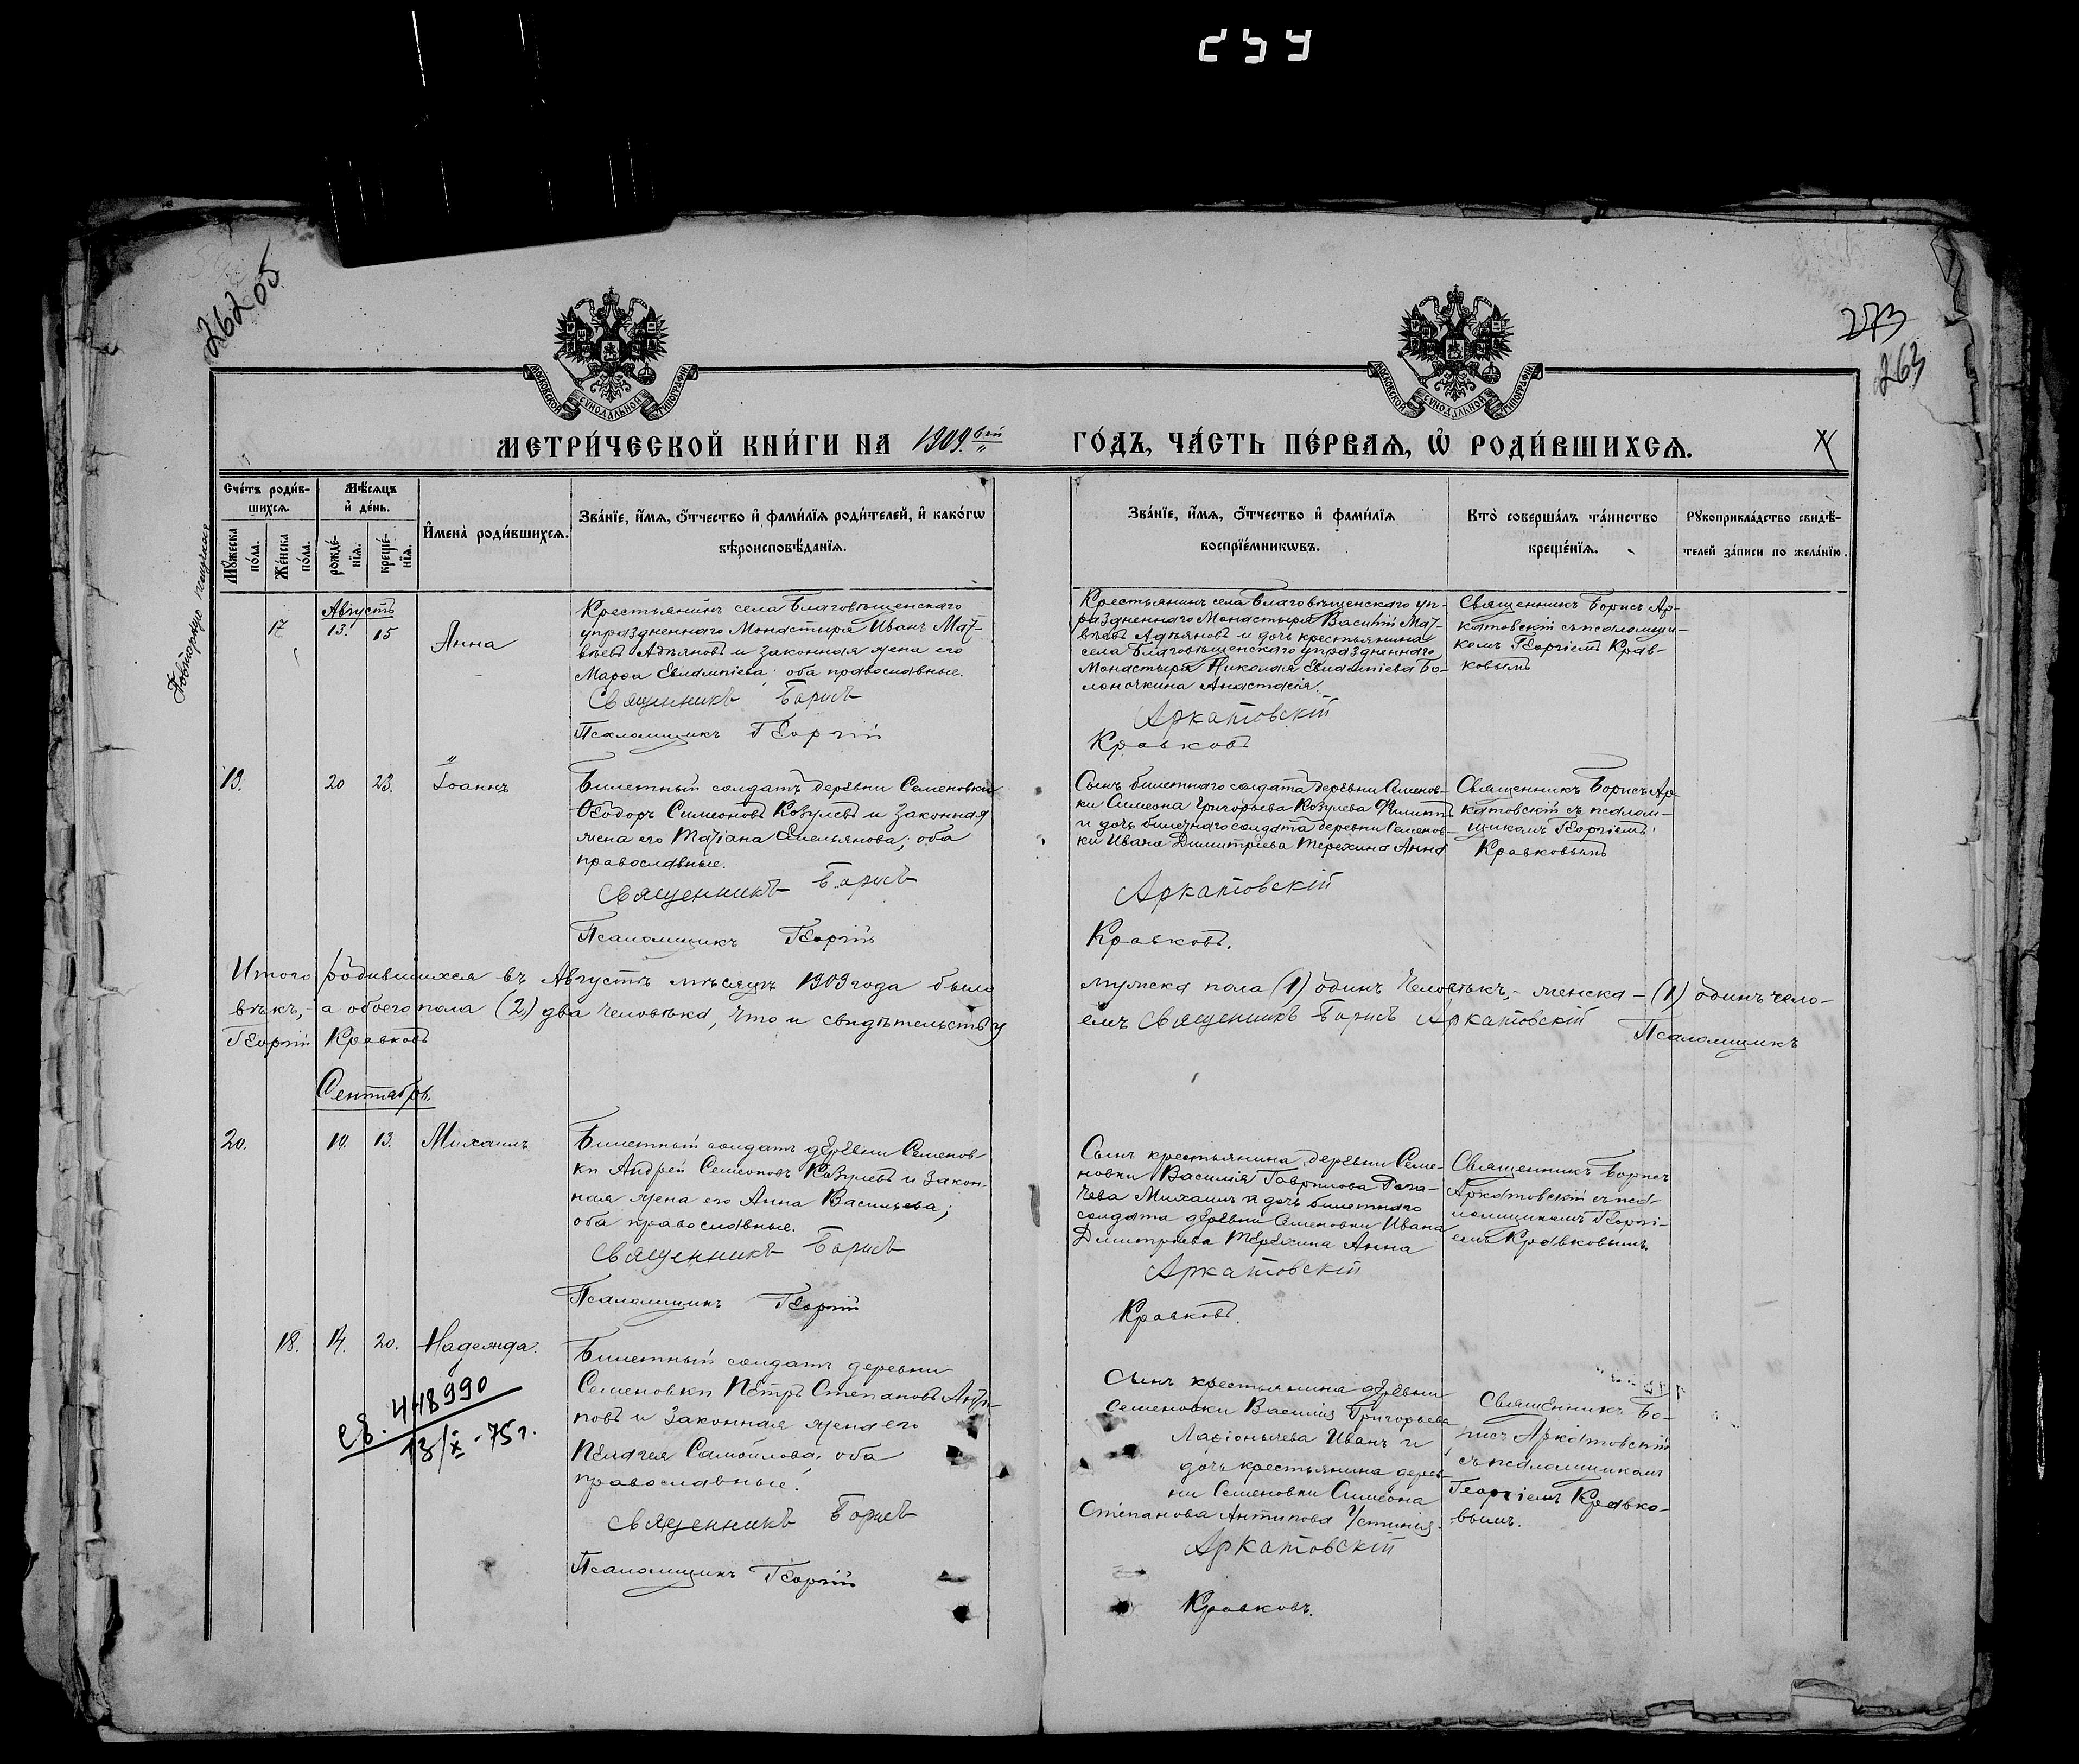 254
26205
273
263
Повторную получил
МОСКОВСКОЙ СѴНОДАЛЬНОЙ ТИПОГРАФІИ
МОСКОВСКОЙ СѴНОДАЛЬНОЙ ТИПОГРАФІИ
МЕТРИ́ЧЕСКОЙ КНИ́ГИ НА 1909.ый
ГО́ДЪ, ЧА́СТЬ ПЕ́РВАѦ, Ѡ҆ РОДИ́ВШИХСѦ.
Сче́тъ роди́в-
шихсѧ.
Мѣ́сѧцъ
и҆ де́нь.
Мꙋ́жеска
по́ла.
Же́нска
по́ла.
рожде́-
нїѧ.
креще́-
нїѧ.
И҆мена̀ роди́вшихсѧ.
Зва́нїе, и҆́мѧ, ѻ҆́тчество и҆ фами́лїѧ роди́телей, и҆ како́гѡ
вѣроисповѣ́данїѧ.
Зва́нїе, и҆́мѧ, ѻ҆́тчество и҆ фами́лїѧ
воспрїе́мникѡвъ.
Кто̀ соверша́лъ та́инство
креще́нїѧ.
Рꙋкоприкла́дство свидѣ́-
телей за́писи по жела́нїю.
Августъ
17 13. 15 Анна
Крестьянинъ села Благовѣщенскаго
упраздненнаго Монастыря Иванъ Мат-
вѣевъ Адъяновъ и законная жена его
Марѳа Евлампіева оба православные.
Священникъ Борисъ
Псаломщикъ Георгій
Крестьянинъ села Благовѣщенскаго уп-
раздненнаго Монастыря Василій Мат-
вѣевъ Адъяновъ и дочь крестьянина
села Благовѣщенскаго упраздненнаго
Монастыря Николая Евлампіева Бо-
лоночкина Анастасія.
Аркатовскій
Кравковъ
Священникъ Борисъ Ар-
катовскій съ псаломщи-
комъ Георгіемъ Крав-
ковымъ
19. 20 23. Іоаннъ
Билетный солдатъ деревни Семеновки
Ѳеодоръ Симеоновъ Козулевъ и законная
жена его Татіана Емельянова; оба
православные.
Священникъ Борисъ
Псаломщикъ Георгій
Сынъ билетнаго солдата деревни Семенов-
ки Симеона Григорьева Козулева Филиппъ
и дочь билетнаго солдата деревни Семенов-
ки Ивана Димитріева Терехина Анна
Аркатовскій
Кравковъ.
Священникъ Борисъ Ар-
катовскій съ псалом-
щикомъ Георгіемъ
Кравковымъ
Итого родившихся въ Августѣ мѣсяцѣ 1909 года было мужска пола (1) одинъ человѣкъ,- женска - (1) одинъ чело-
вѣкъ,- а обоего пола (2) два человѣка, что и свидѣтельству емъ Священникъ Борисъ Аркатовскій Псаломщикъ
Георгій Кравковъ
Сентябрь.
20. 10. 13. Михаилъ
Билетный солдатъ деревни Семенов-
ки Андрей Семеоновъ Козулевъ и закон-
ная жена его Анна Васильева;
оба православные.
Священникъ Борисъ
Псаломщикъ Георгій
Сынъ крестьянина деревни Семе-
новки Василія Гаврилова
Михаилъ и дочь билетнаго
солдата деревни Семеновки Ивана
Димитріева Терехина Анна
Аркатовскій
Кравковъ.
Священникъ Борисъ
Аркатовскій съ пса-
ломщикомъ Георгі-
емъ Кравковымъ.
18. 14. 20. Надежда.
Билетный солдатъ деревни
Семеновки Петръ Степановъ Анти-
повъ и законная жена его
Пелагея Самойлова, оба
православные.
Священникъ Борисъ
Псаломщикъ Георгій
Сынъ крестьянина деревни
Семеновки Василія Григорьева
Иванъ и
дочь крестьянина дерев-
ни Семеновки Симеона
Степанова Антипова Устинія.
Аркатовскій
Кравковъ.
Священникъ Бо-
рисъ Аркатовскій
съ псаломщикомъ
Георгіемъ Кравко-
вымъ.
св. 448990
13/X - 75 г.